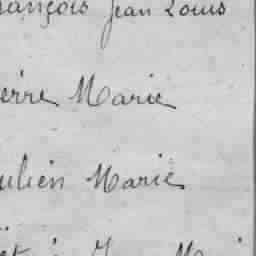 rançois Jean Louis
ierre Marie
ulien Marie